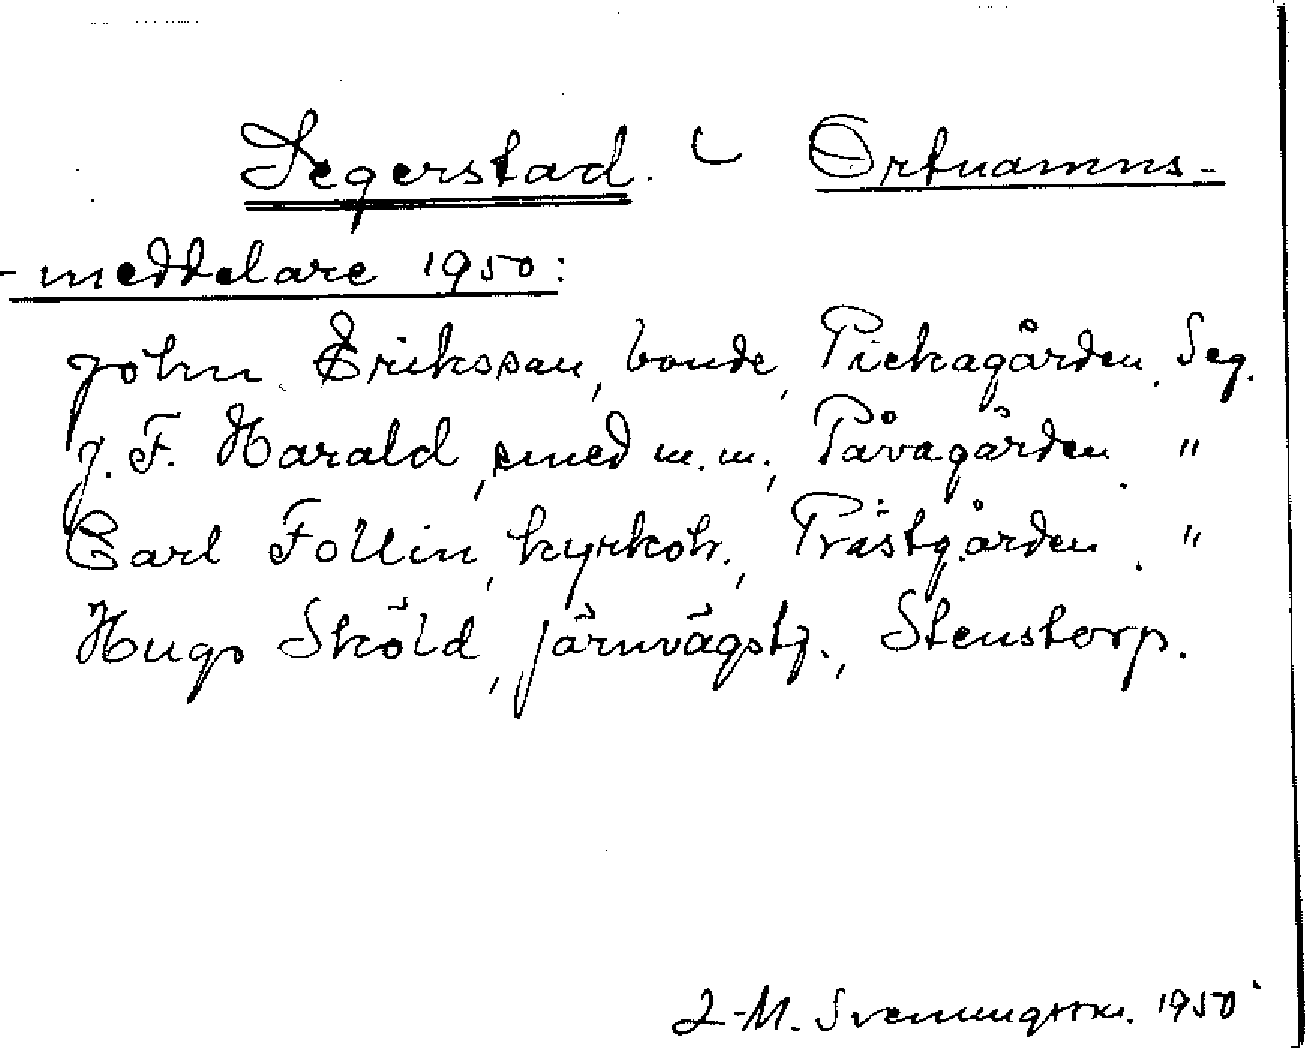 Segerstad. Ortnamns-
-meddelare 1950:
John Eriksson, bonde, Pickagården, Seg.
J. F. Harald, smed m.m., Påvagården. "
Carl Follin, kyrkoh., Prästgården. "
Hugo Sköld, järnvägstj., Stenstorp.
1950